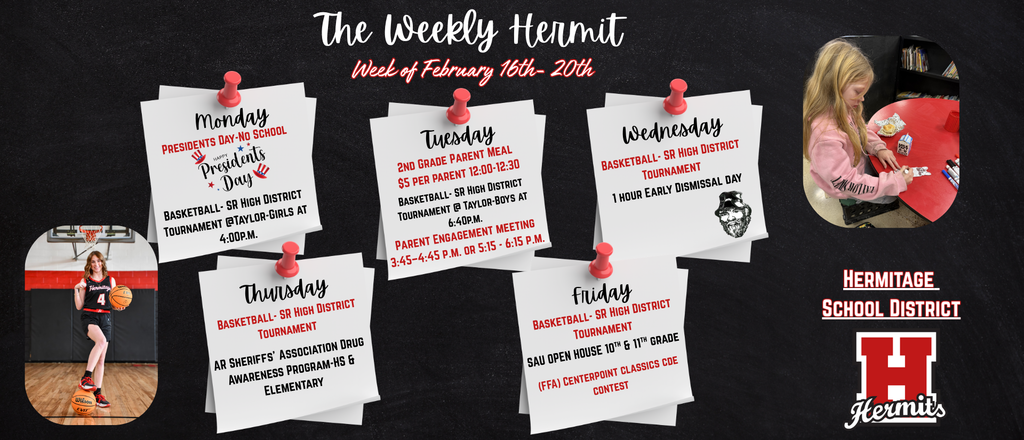 The Weekly Hermit
Week of February 16th- 20th
Monday
Presidents Day-No School
Happy
Presidents
Day
Basketball- SR High District
Tournament @Taylor-Girls at
4:00p.m.
Tuesday
2nd Grade Parent Meal
$5 per parent 12:00-12:30
Basketball- SR High District
Tournament @ Taylor-Boys at
6:40p.m.
Parent Engagement Meeting
3:45-4:45 p.m. or 5:15 - 6:15 p.m.
Wednesday
Basketball- SR High District
Tournament
1 hour Early Dismissal day
Thursday
Basketball- SR High District
Tournament
AR Sheriffs' Association Drug
Awareness Program-HS &
Elementary
Friday
Basketball- SR High District
Tournament
SAU open house 10th & 11th grade
(FFA) Centerpoint classics CDE
contest
Hermitage
4
Hermitage
School District
H
Hermits